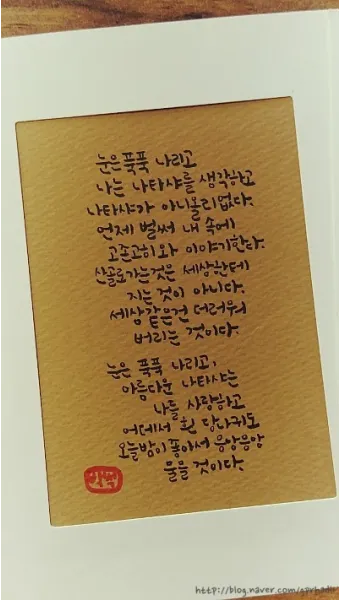 눈은 푹푹 나리고
나는 나타샤를 생각하고
나타샤가 아니올리 없다.
언제 벌써 내 속에
고조곤히 와 이야기한다.
산골로 가는 것은 세상한테
지는 것이 아니다.
세상 같은건 더러워
버리는 것이다.
눈은 푹푹 나리고,
아름다운 나타샤는
나를 사랑하고
어데서 흰 당나귀도
오늘밤이 좋아서 응앙응앙
울을 것이다.